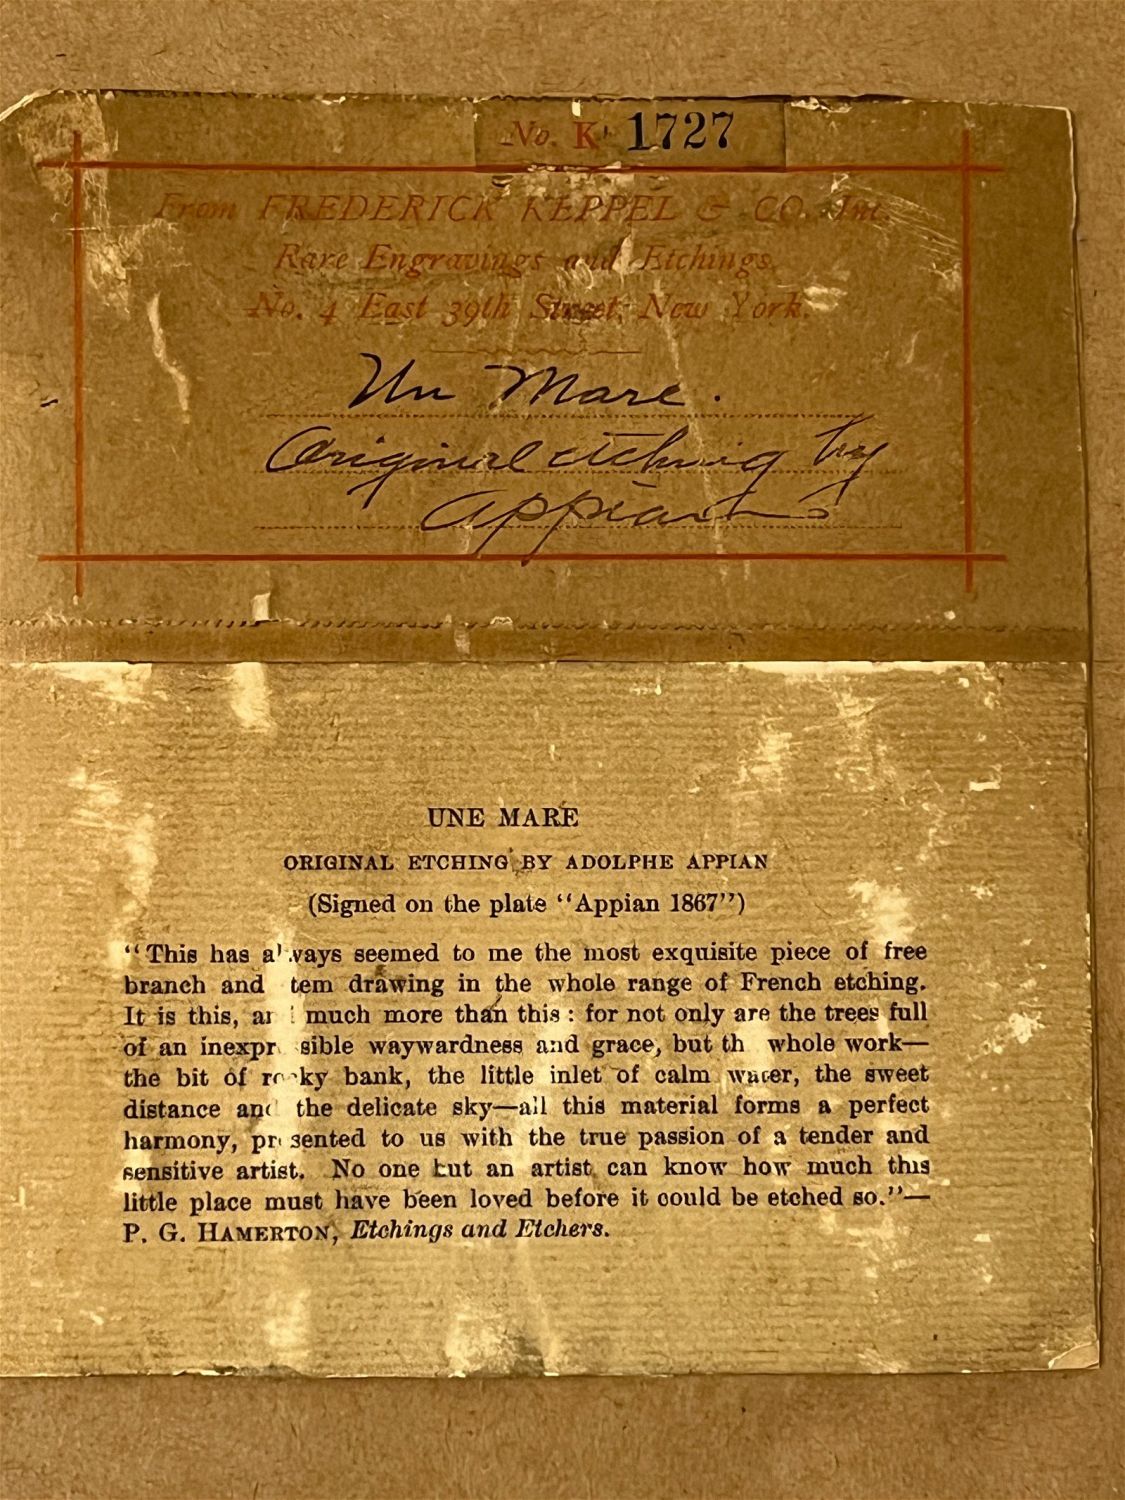 No. K 1727
From FREDERICK KEPPEL & CO. Inc.
Rare Engravings and Etchings,
No. 4 East 39th Street, New York.
Un Mare.
Original etching by
Appian
UNE MARE
ORIGINAL ETCHING BY ADOLPHE APPIAN
(Signed on the plate "Appian 1867")
"This has always seemed to me the most exquisite piece of free
branch and tem drawing in the whole range of French etching.
It is this, an much more than this: for not only are the trees full
of an inexpr sible waywardness and grace, but th whole work—
the bit of rocky bank, the little inlet of calm water, the sweet
distance and the delicate sky—all this material forms a perfect
harmony, presented to us with the true passion of a tender and
sensitive artist. No one but an artist can know how much this
little place must have been loved before it could be etched so."—
P. G. HAMERTON, Etchings and Etchers.